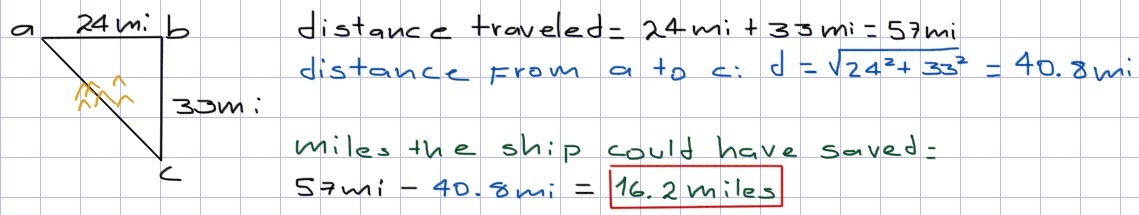 a 24mi b
33mi
c
distance traveled= 24mi + 33mi = 57mi
distance From a to c: d = √24²+ 33² = 40.8mi
miles the ship could have saved=
57mi - 40.8mi = 16.2 miles